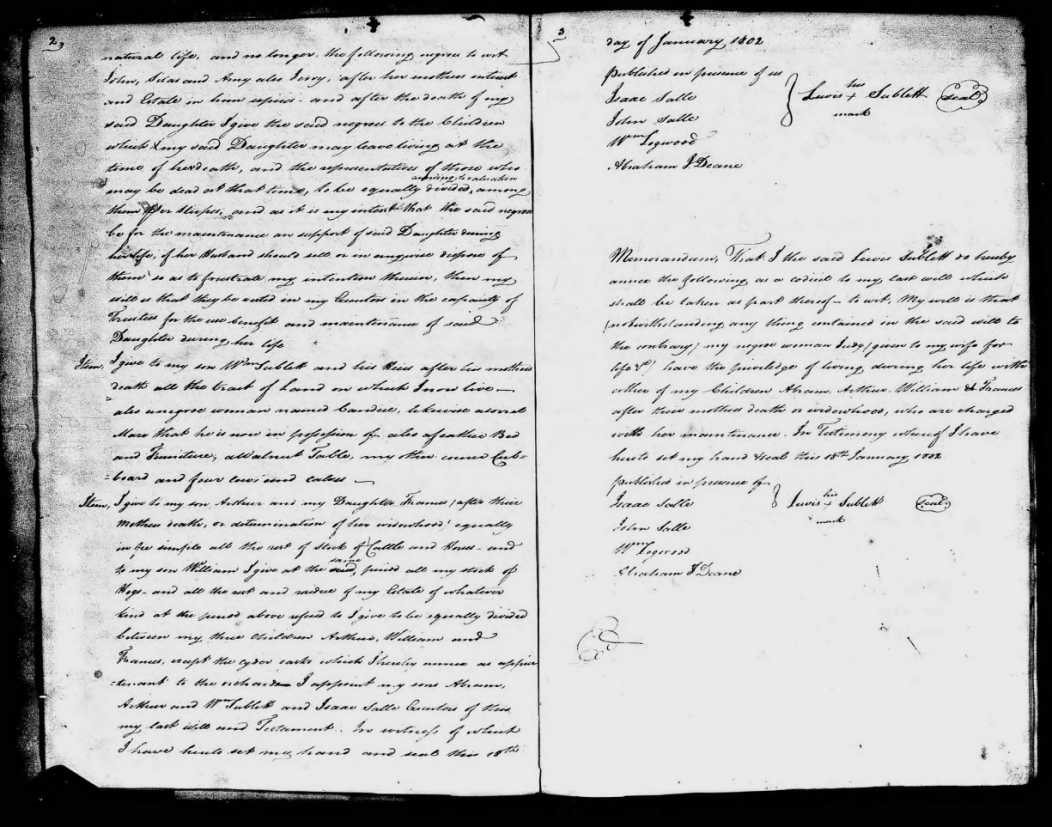 2,
natural life, and no longer, the following negroes to wit.
John, Silas and Amy also Jerry, after her mothers intrest
and Estate in him expires - and after the death of my
said Daughter I give the said negroes to the Children
which my said Daughter may leave living at the
time of her death, and the representatives of those who
may be dead at that time, to be equally divided, according to valuation among
them per stirpes, and as it is my intent that the said negroes
be for the maintenance an support of said Daughter during
her life, if her Husband should sell or in anywise dispose of
them so as to frustrate my intention therein, then my
will is that they be vested in my Executors in the capacity of
Trustees for the use benefit and maintenance of said
Daughter during her life
Item, I give to my son Wm Sublett and his Heirs after his mothers
death all the tract of Land on which I now live -
also a negroe woman named Candice, likewise a sorrel
Mare that he is now in possession of also a feather Bed
and Furniture, a Walnut Table, my other corner Cub-
-board and four cows and calves -
Item, I give to my son Arthur and my Daughter Frances, after their
Mothers death, or determination of her widowhood, equally
in fee simple all the rest of stock of Cattle and Horses - and
to my son William I give at the same period all my stock of
Hogs - and all the rest and residue of my Estate of whatever
kind at the period above refered to I give to be equally divided
between my three Children Arthur, William and
Frances, except the cyder casks which I hereby annex as appur
-tenant to the orchards I appoint my sons Abram,
Arthur and Wm Sublett and Isaac Salle Executors of this
my last Will and Testament. In witness of which
I have hereto set my hand and seal this 18th
3
day of January 1802
published in presence of us
Isaac Salle
Lewis his + mark Sublett (seal)
John Salle
Wm Legwood
Abraham F Deane
Memorandum, That I the said Lewis Sublett do hereby
annex the following as a codicil to my last will which
shall be taken as part thereof - to wit, My will is that
(notwithstanding any thing contained in the said will to
the contrary) my negroe woman Judy (given to my wife for
life &c) have the priviledge of living during her life with
either of my Children Abram, Arthur William & Frances
after their mothers death or widowhood, who are charged
with her maintenance. In Testimony whereof I have
hereto set my hand & seal this 18th January 1802
published in presence of
Isaac Salle
Lewis his + mark Sublett (seal)
John Salle
Wm Legwood
Abraham F Deane